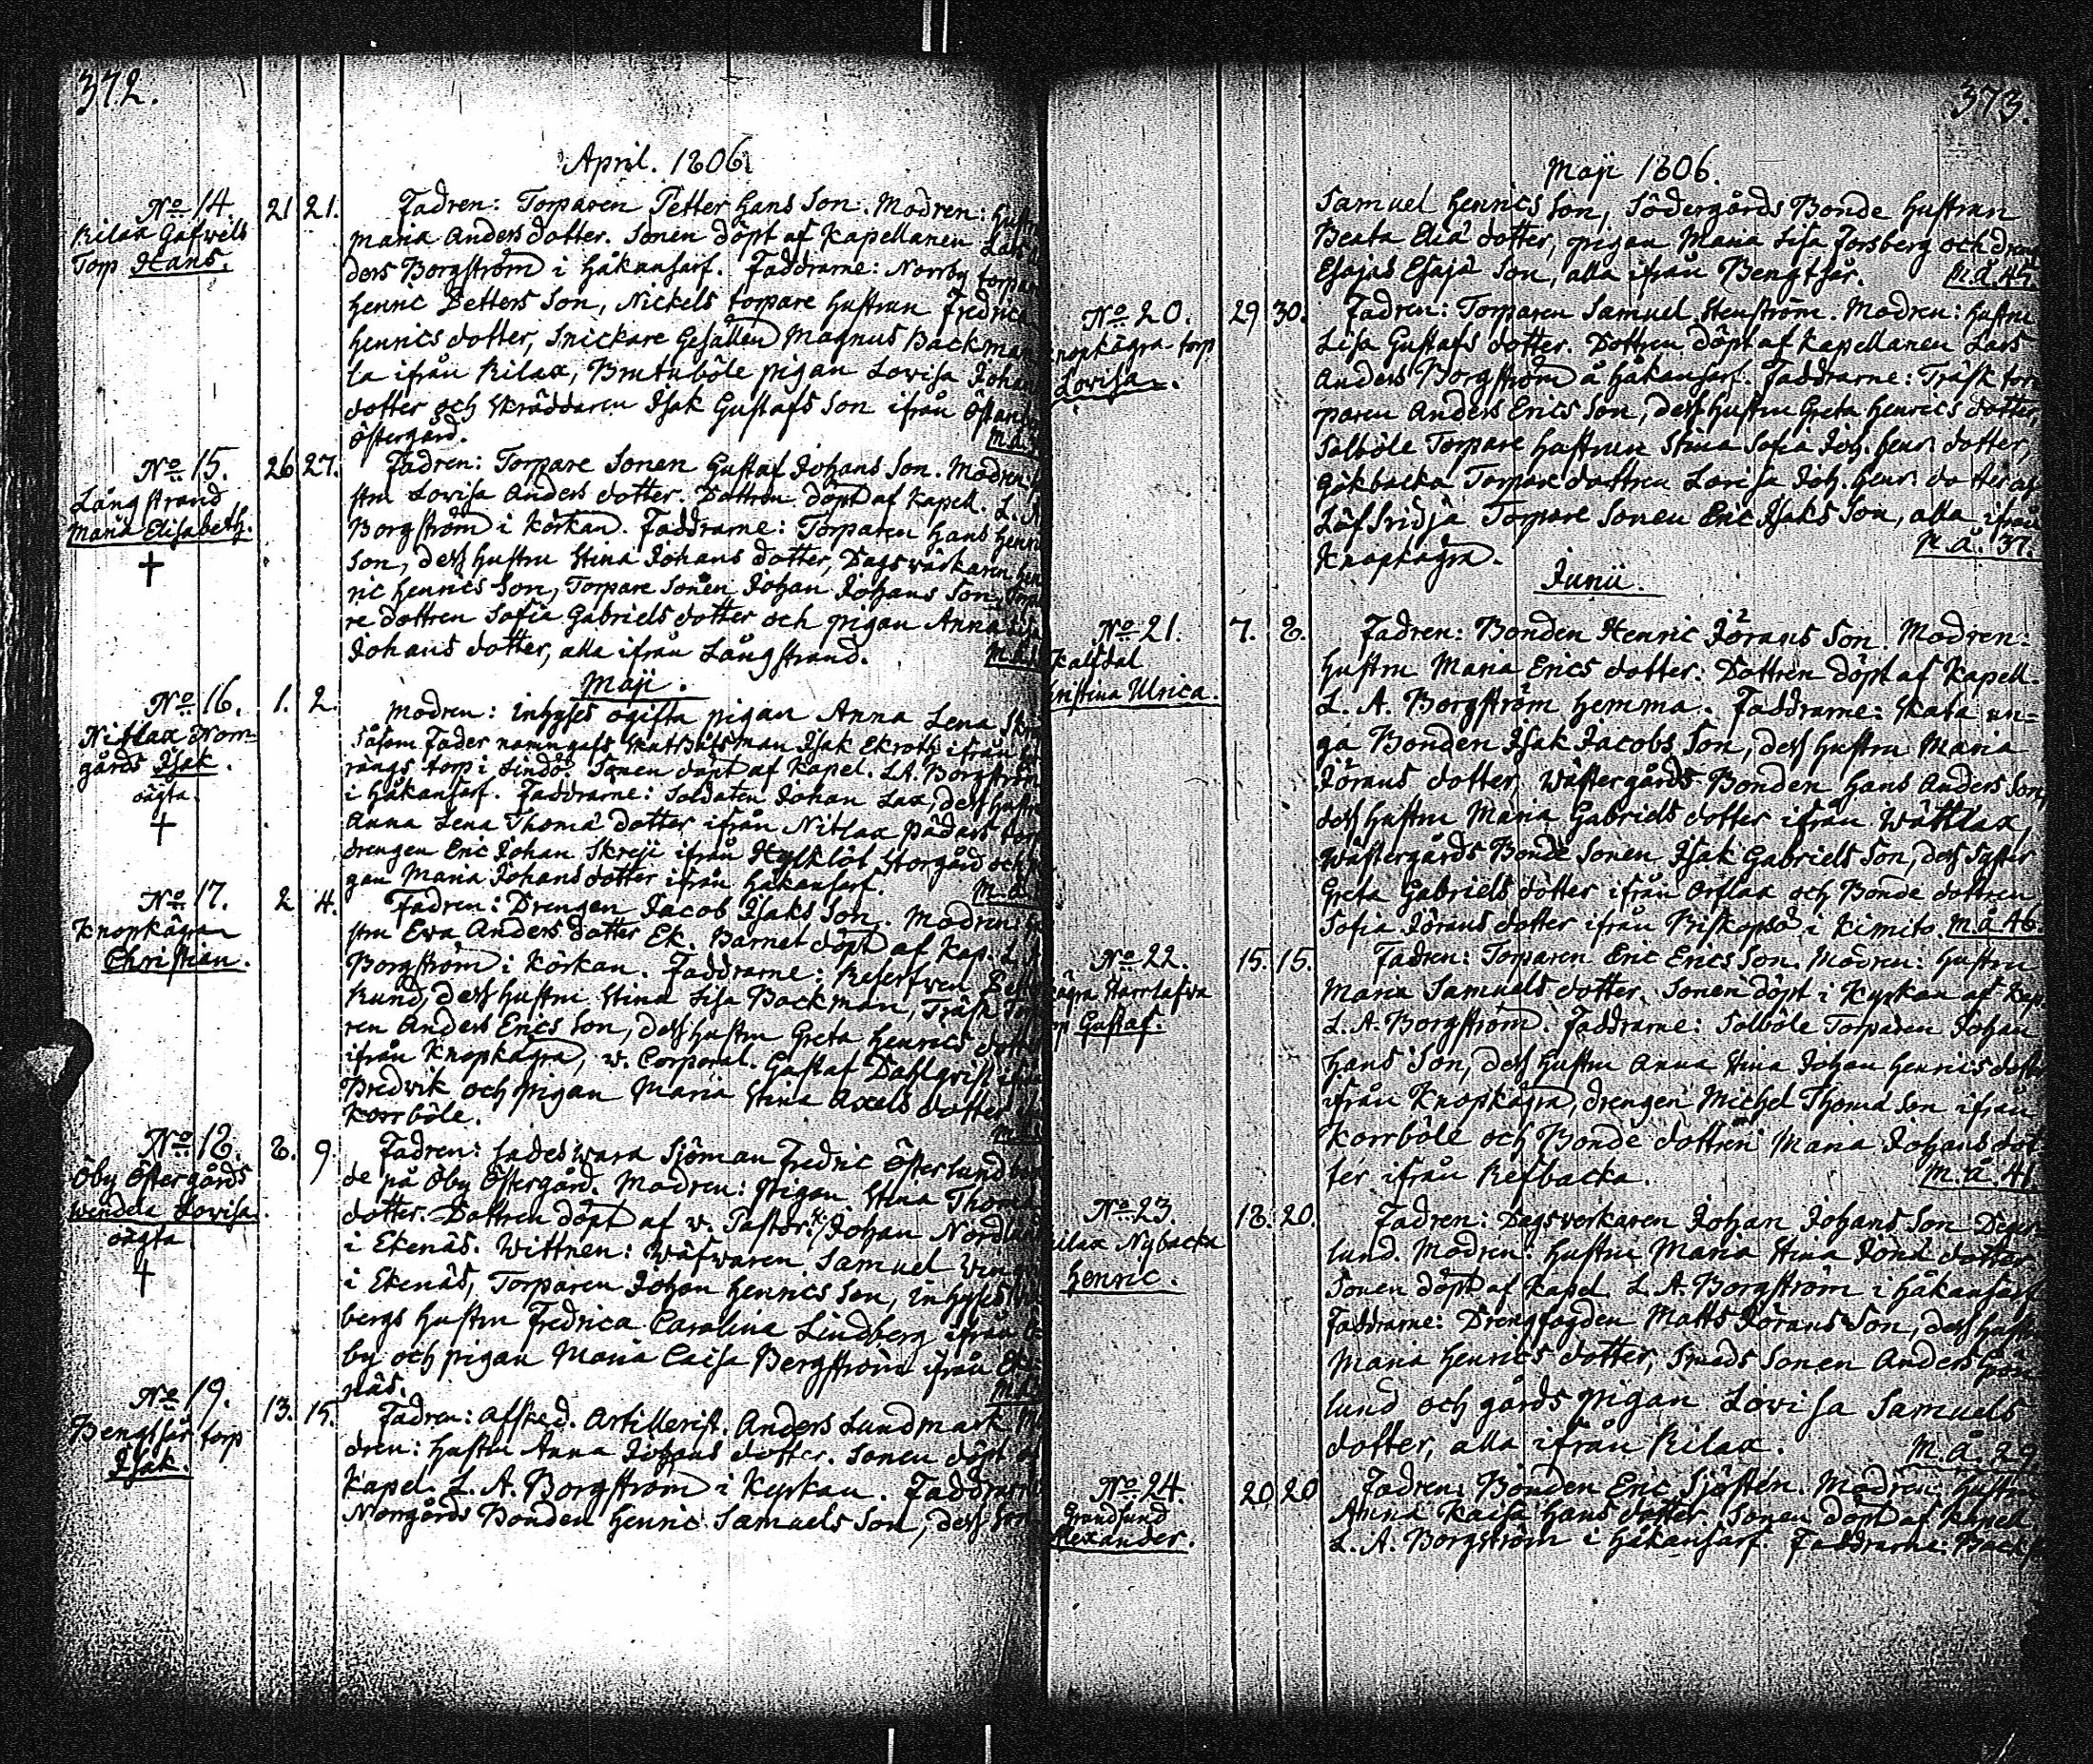 372.
April. 1806.
No 14. 21 21. Fadren: Torparen Petter Hans Son. Modren: Hustru
Rilax Gafwels
Torp Hans.
Maria Anders dotter. Sonen döpt af Kapellanen Lars
ders Borgström i Håkansarf. Faddrarne: Norrby torpar
Henric Petters Son, Nickels torpare hustrun Fredrica
Henrics dotter, Snickare Gesällen Magnus Backman
la ifrån Rilax, Brutuböle pigan Lovisa Johan
dotter och Skräddaren Isak Gustafs Son ifrån
Östergård.
No 15. 26 27. Fadren: Torpare Sonen Gustaf Johans Son. Modren:
Långstrand
Maria Elisabeth.
†
stru Lovisa Anders dotter. Dottren döpt af Kapell. L. A.
Borgström i Körkan. Faddrarne: Torparen Hans Henric
Son, dess hustru Stina Johans dotter, Dagsvärkaren Hen
ric Henrics Son, Torpare Sonen Johan Johans Son, Torpa
re dottren Sofia Gabriels dotter och pigan Anna
Johans dotter, alla ifrån Långstrand.
Maji.
No 16. 1. 2. Modren: inhyses ogifta pigan Anna Lena
Nitlax Norr-
gårds Isak.
oägta.
†
Såsom Fader namngafs Skattbåtsman Isak Ekroth ifrån
rängs torp i Lindö. Sonen döpt af Kapel. L. A. Borgström
i Håkansarf. Faddrarne: Soldaten Johan Lax, dess hustru
Anna Lena Thomä dotter ifrån Nitlax Pädars torp
drengen Eric Johan Skreji ifrån Hylklöt Storgård och
gan Maria Johans dotter ifrån Håkansarf.
No 17. 2 4. Fadren: Drengen Jacob Isaks Son. Modren:
Knopkägra
Christian.
stru Ewa Anders dotter Ek. Barnet döpt af Kap. L. A.
Borgström i Körkan. Faddrarne: Reserfven
Rund, dess hustru Stina Lisa Backman, Träsk Tor
ren Anders Erics Son, dess hustru Greta Henrics dotter
ifrån Knopkägra, v. Corporal. Gustaf Dahlqvist ifrån
Bredvik och pigan Maria Stina Axels dotter
Korrböle.
No 18. 8. 9. Fadren: sades wara Sjöman Fredric Österlund
Öby Östergårds
Wendla Lovisa.
oägta
†
de på Öby Östergård. Modren: pigan Stina Thomä
dotter. Dottren döpt af v. Pastor. Johan Nordlund
i Ekenäs. Wittnen: Wäfwaren Samuel
i Ekenäs, Torparen Johan Henrics Son, inhyses
bergs hustru Fredrica Carolina Lindberg ifrån Ö
by och pigan Maria Caisa Bergström ifrån Eke
näs.
No 19. 13. 15. Fadren: Afsked. Artillerist. Anders Lundmark. Mo
Bengtsår torp
Isak.
dren: hustru Anna Johans dotter. Sonen döpt af
Kapel. L. A. Borgström i Kyrkan. Faddrarne
Norrgårds Bonden Henric Samuels Son, dess
373.
Maji 1806.
Samuel Henrics Son, Södergårds Bonde hustrun
Beata Eliä dotter, pigan Maria Lisa Forsberg och dreng
Esajas Esajä Son, alla ifrån Bengtsår. M. å. 45.
No 20. 29 30. Fadren: Torparen Samuel Stenström. Modren: hustru
nopkägra torp
Lovisa.
Lisa Gustafs dotter. Dottren döpt af Kapellanen Lars
Anders Borgström å Håkansarf. Faddrarne: Träsk tor
paren Anders Erics Son, dess hustru Greta Henrics dotter,
Solböle Torpare hustrun Stina Sofia Joh. Henr. dotter,
Gökbacka Torpare dottren Lovisa Joh. Henr. dotter
Löfsridja Torpare Sonen Eric Isaks Son, alla ifrån
Knopkägra. M. å. 37.
Junii.
No 21. 7. 8. Fadren: Bonden Henric Jörans Son. Modren:
Kalfdal
hristina Ulrica.
Hustru Maria Erics dotter. Dottren döpt af Kapell.
L. A. Borgström hemma. Faddrarne: Skata un-
ga Bonden Isak Jacobs Son, dess hustru Maria
Jörans dotter, Wästergårds Bonden Hans Anders Son,
dess hustru Maria Gabriels dotter ifrån Wättlax,
Wästergårds Bonde Sonen Isak Gabriels Son, dess Syster
Greta Gabriels dotter ifrån Orslax och Bonde dottren
Sofia Jörans dotter ifrån Biskopsö i Kimito. M. å. 46.
No 22. 15. 15. Fadren: Torparen Eric Erics Son. Modren: Hustru
kägra Starrlafwa
rp Gustaf.
Maria Samuels dotter. Sonen döpt i Kyrkan af Kap.
L. A. Borgström. Faddrarne: Solböle Torparen Johan
Hans Son, dess hustru Anna Stina Johan Henrics dotter
ifrån Knopkägra, drengen Michel Thomä Son ifrån
Korrböle och Bonde dottren Maria Johans dot
ter ifrån Refbacka. M. å. 41.
No 23. 18. 20. Fadren: Dagsverkaren Johan Johans Son Deger
ilax Nybacka
Henric.
lund. Modren: hustru Maria Stina Jonä dotter.
Sonen döpt af Kapel. L. A. Borgström i Håkansarf
Faddrarne: Drengfogden Matts Jörans Son, dess hustru
Maria Henrics dotter, Smeds Sonen Anders Grön
lund och gårds pigan Lovisa Samuels
dotter, alla ifrån Rilax. M. å. 29.
No 24. 20 20 Fadren: Bonden Eric Sjöstén. Modren: hustru
Grundsund
Alexander.
Anna Kaisa Hans dotter. Sonen döpt af Kapell
L. A. Borgström i Håkansarf. Faddrarne: Back